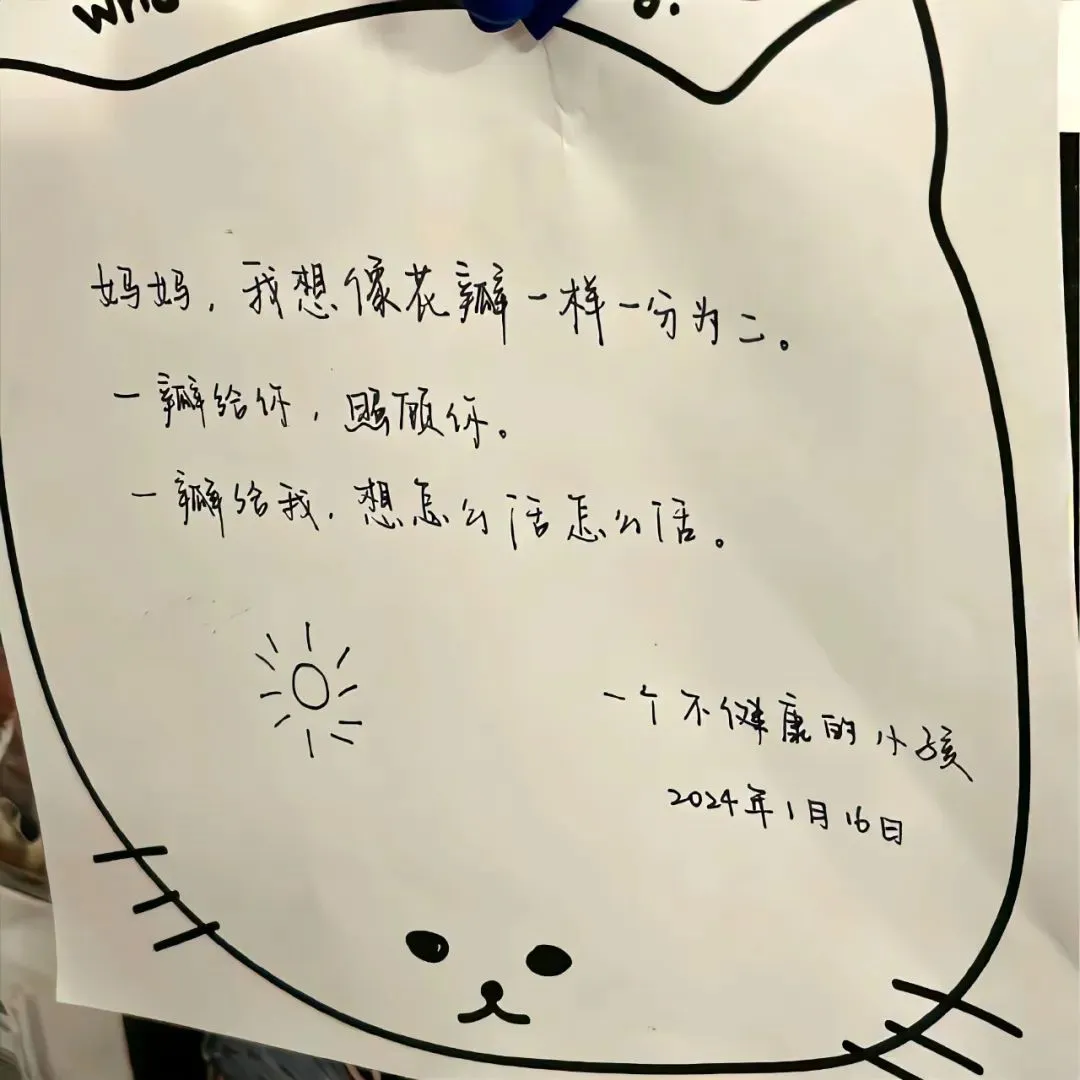 妈妈，我想像花瓣一样一分为二。
一瓣给你，照顾你。
一瓣给我，想怎么活怎么活。
一个不健康的小孩
2024年1月16日